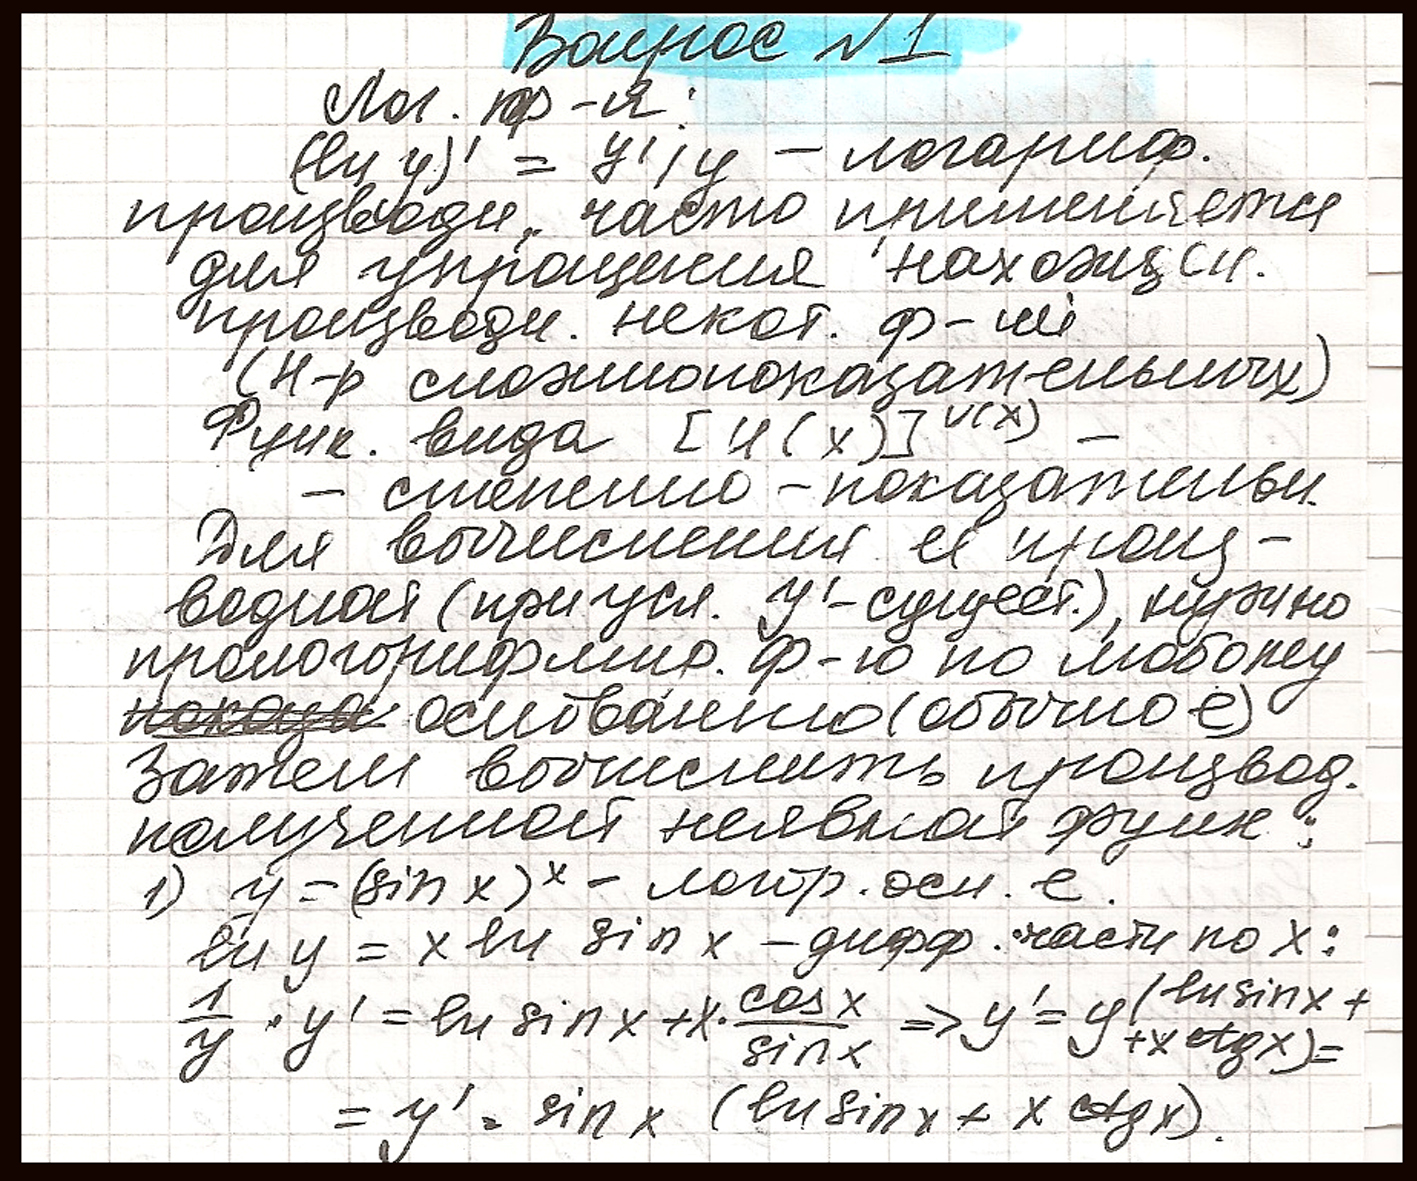 Вопрос №1
Лог. пр-я:
(ln y)' = y'/y – логариф.
производн., часто применяется
для упрощения нахожден.
производн. некот. ф-ий
(Н-р сложнопоказательных)
Функ. вида [U(x)]^V(x) –
– степенно-показательн.
Для вычисления её произ-
водной (при усл. y'-сущест.), нужно
прологорифмир. ф-ю по любому
основанию (обычно e)
Затем вычислить производ.
полученной неявной функ:
1) y = (sin x)^x – логор. осн. e.
ln y = x ln sin x – дифф. части по x:
1/y · y' = ln sin x + x · cos x / sin x => y' = y (ln sin x +
+ x ctg x) =
= y' = sin x (ln sin x + x ctg x).